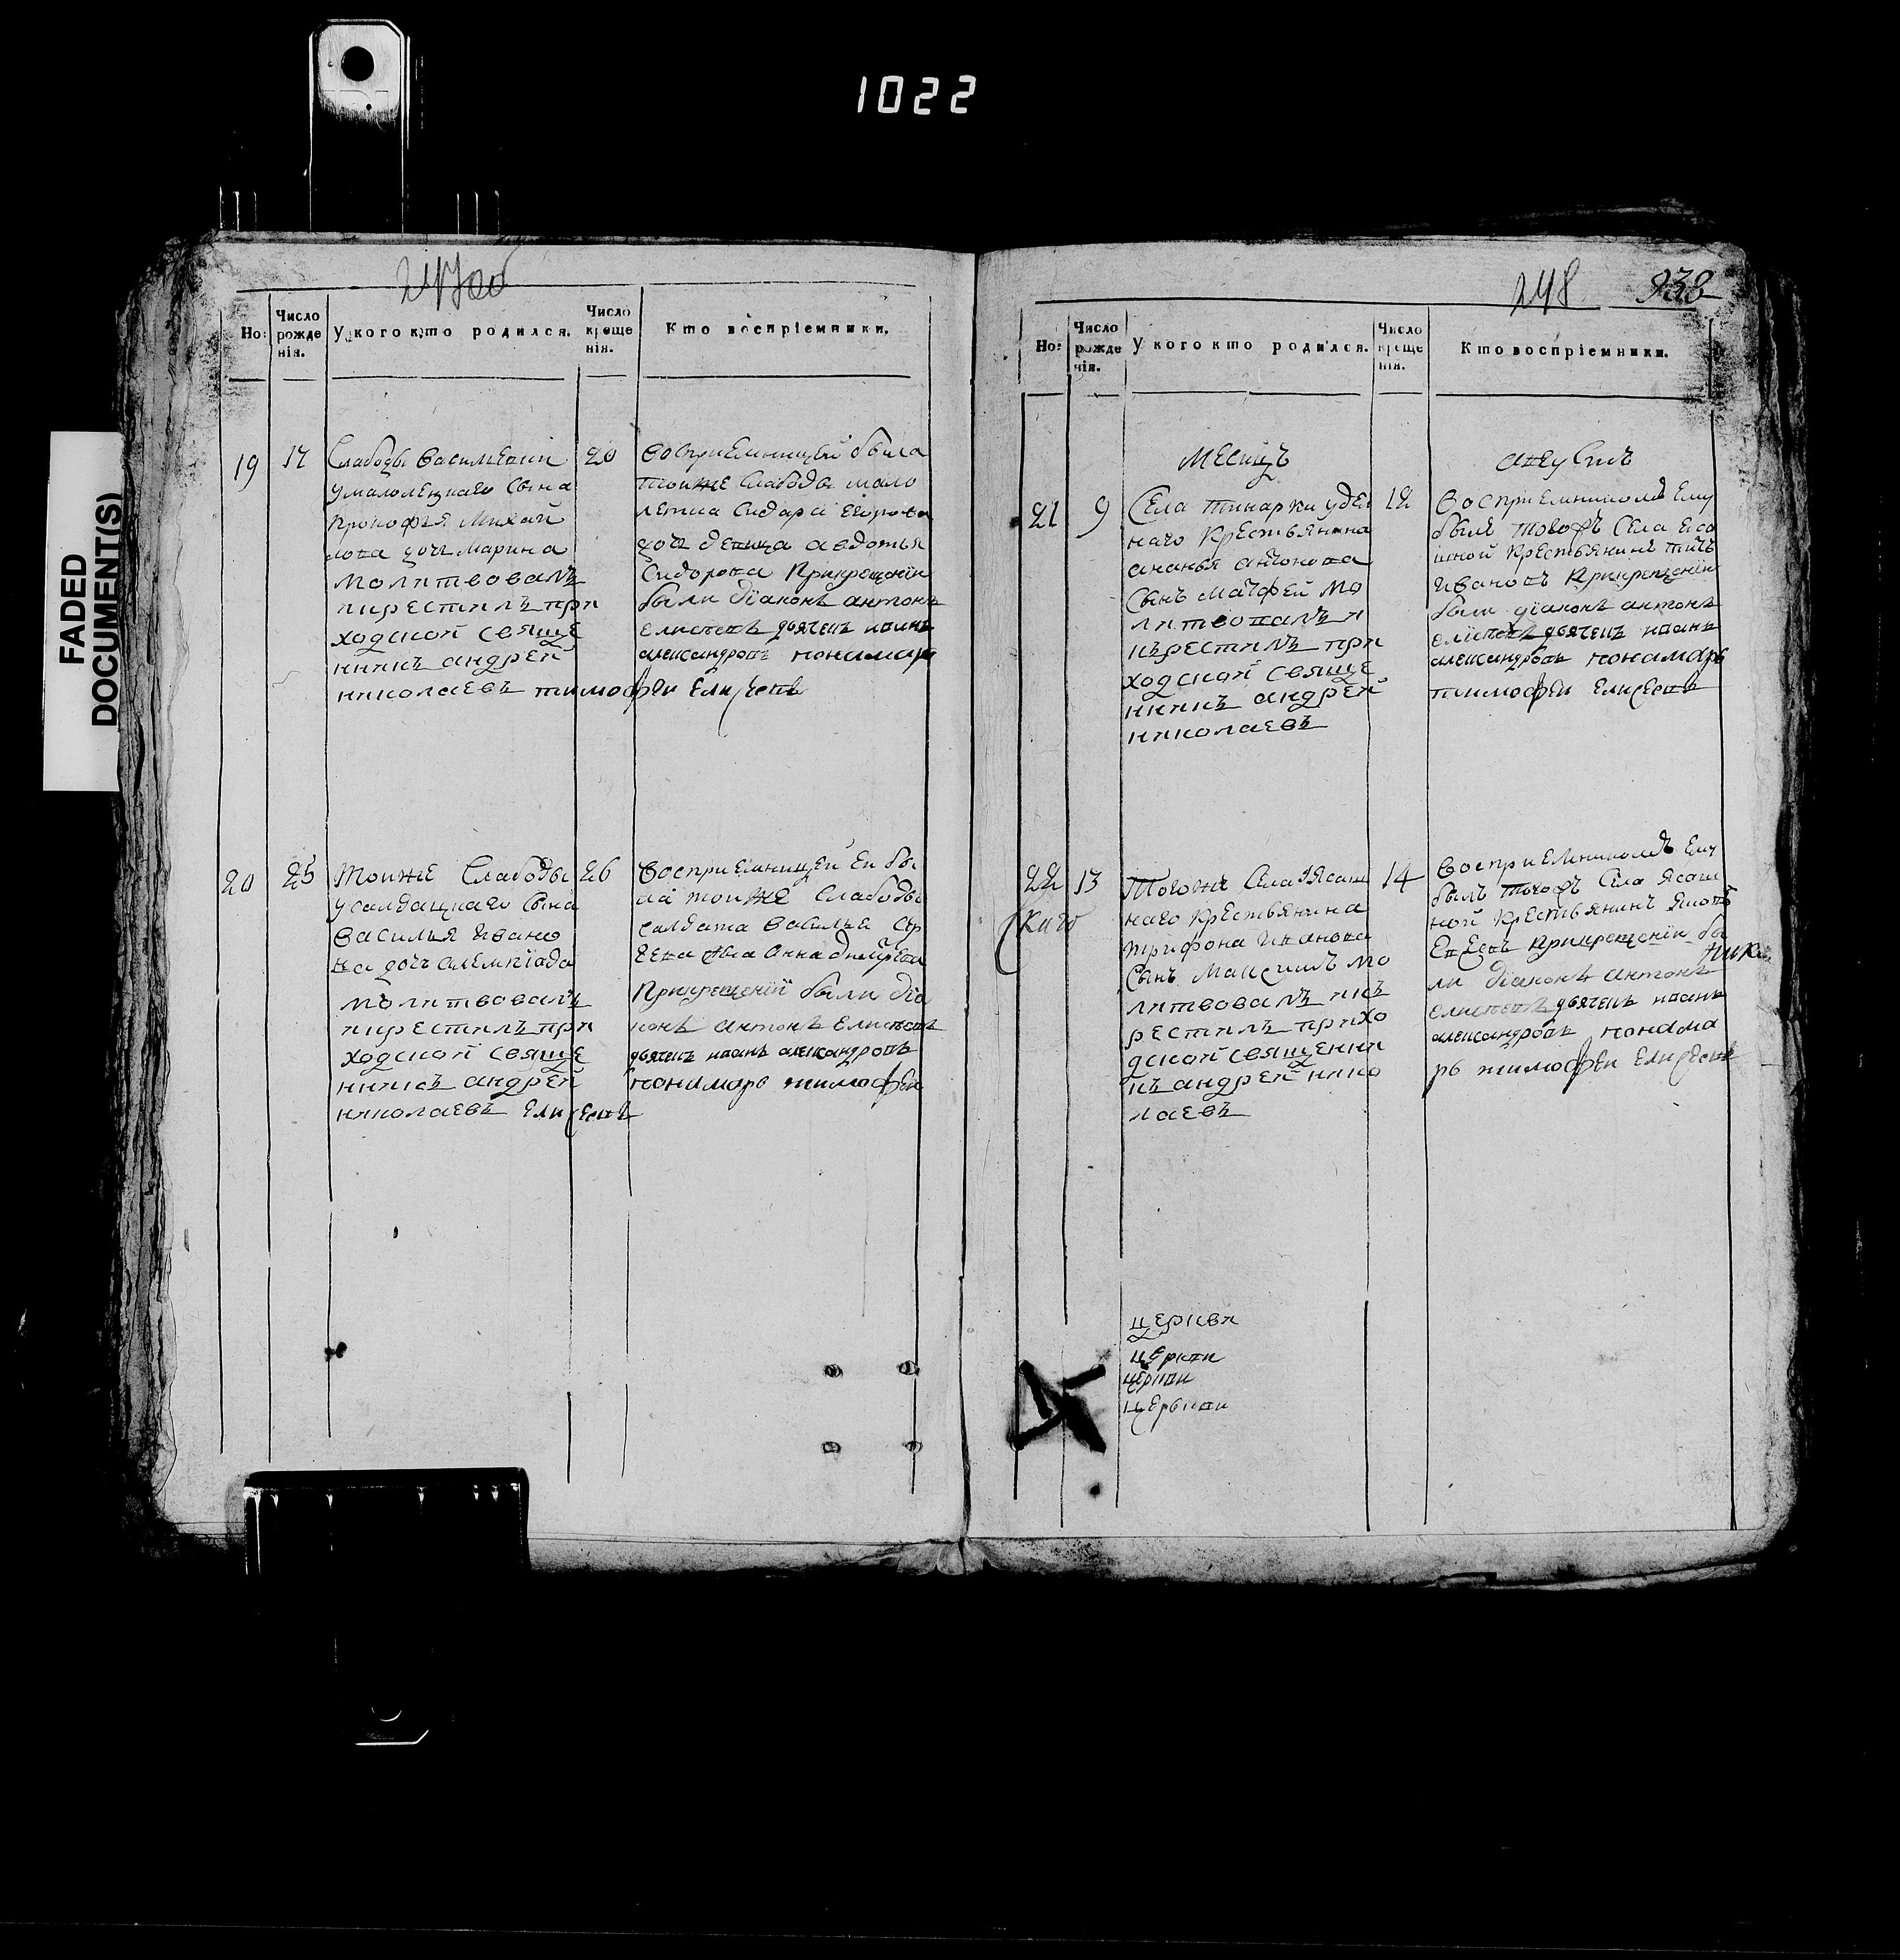 1022
FADED
DOCUMENT(S)
247 об
Но:
Число рожденія.
У кого кто родился.
Число крещенія.
Кто воспріемники.
19
17
Слабоды Василевки
умалолецкаго сына
Прокофья Михай
лова дочь Марина
молитвовалъ
икрестилъ при
ходской свяще
нникъ андрей
николаевъ
20
Восприемницей была
тоиже слабоды мало
летна Сидара Егорова
дочь девица авдотья
Сидорова Прикрещенїи
были дїаконъ антонъ
елисеевъ дьячекъ иванъ
александровъ понамарь
тимофеи Елисеевъ
20
25
Тоиже Слабоды
усалдацкаго сына
Василья Ивано
ва дочь алемпїада
молитвовалъ
икрестилъ при
ходской свяще
нникъ андрей
николаевъ
26
Восприемницей Еи бы
ла тоиже слабоды
салдата Василья
Анна
Прикрещенїи были дїа
конъ антонъ Елисеевъ
дьячекъ иванъ александровъ
понамарь тимофеи
Елисеевъ
248
938
Но:
Число рожденія.
У кого кто родился.
Число крещенія.
Кто воспріемники.
Месицъ
августъ
21
9
Села Тинарки удел
наго крестьянина
ананья антонова
Сынъ Матфей мо
литвовалъ и
кърестилъ при
ходской свяще
нникъ андрей
николаевъ
12
Восприемникомъ Ему
былъ тогожъ Села яса
шной крестьянинъ титъ
Ивановъ Прикрещенїи
были дїаконъ антонъ
елисеевъ дьячекъ иванъ
александровъ понамарь
тимофеи Елисеевъ
22
13
Тогоже Села Ясаш
наго крестьянина
трифона Иванова
Сынъ Максимъ мо
литвовалъ икъ
рестилъ прихо
дской священни
къ андрей нико
лаевъ
14
Восприемникомъ Ему
былъ тогожъ Села Ясаш
ной крестьянинъ Яковъ
Прикрещенїи бы
ли дїаконъ антонъ
елисеевъ дьячекъ иванъ
александровъ понама
рь тимофеи Елисеевъ
церкви
церкви
церкви
церькви